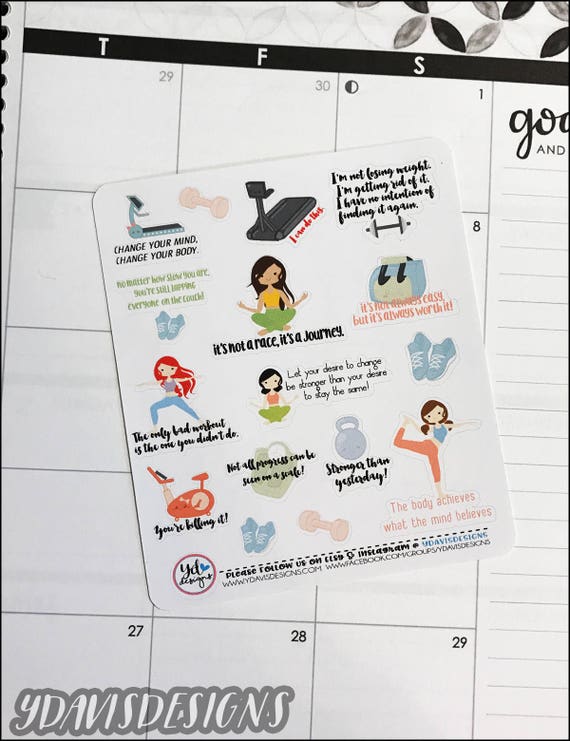 T F S
29 30 1
goa
AND
8
CHANGE YOUR MIND,
CHANGE YOUR BODY.
I can do this.
I'm not losing weight.
I'm getting rid of it.
I have no intention of
finding it again.
no matter how slow you are,
you're still lapping
everyone on the couch!
it's not a race, it's a journey.
it's not always easy,
but it's always worth it!
The only bad workout
is the one you didn't do.
Let your desire to change
be stronger than your desire
to stay the same!
You're killing it!
Not all progress can be
seen on a scale!
Stronger than
yesterday!
The body achieves
what the mind believes
Yd
designs
PLEASE FOLLOW US ON ETSY & INSTAGRAM @ YDAVISDESIGNS
WWW.YDAVISDESIGNS.COM WWW.FACEBOOK.COM/GROUPS/YDAVISDESIGNS
27 28 29
YDAVISDESIGNS